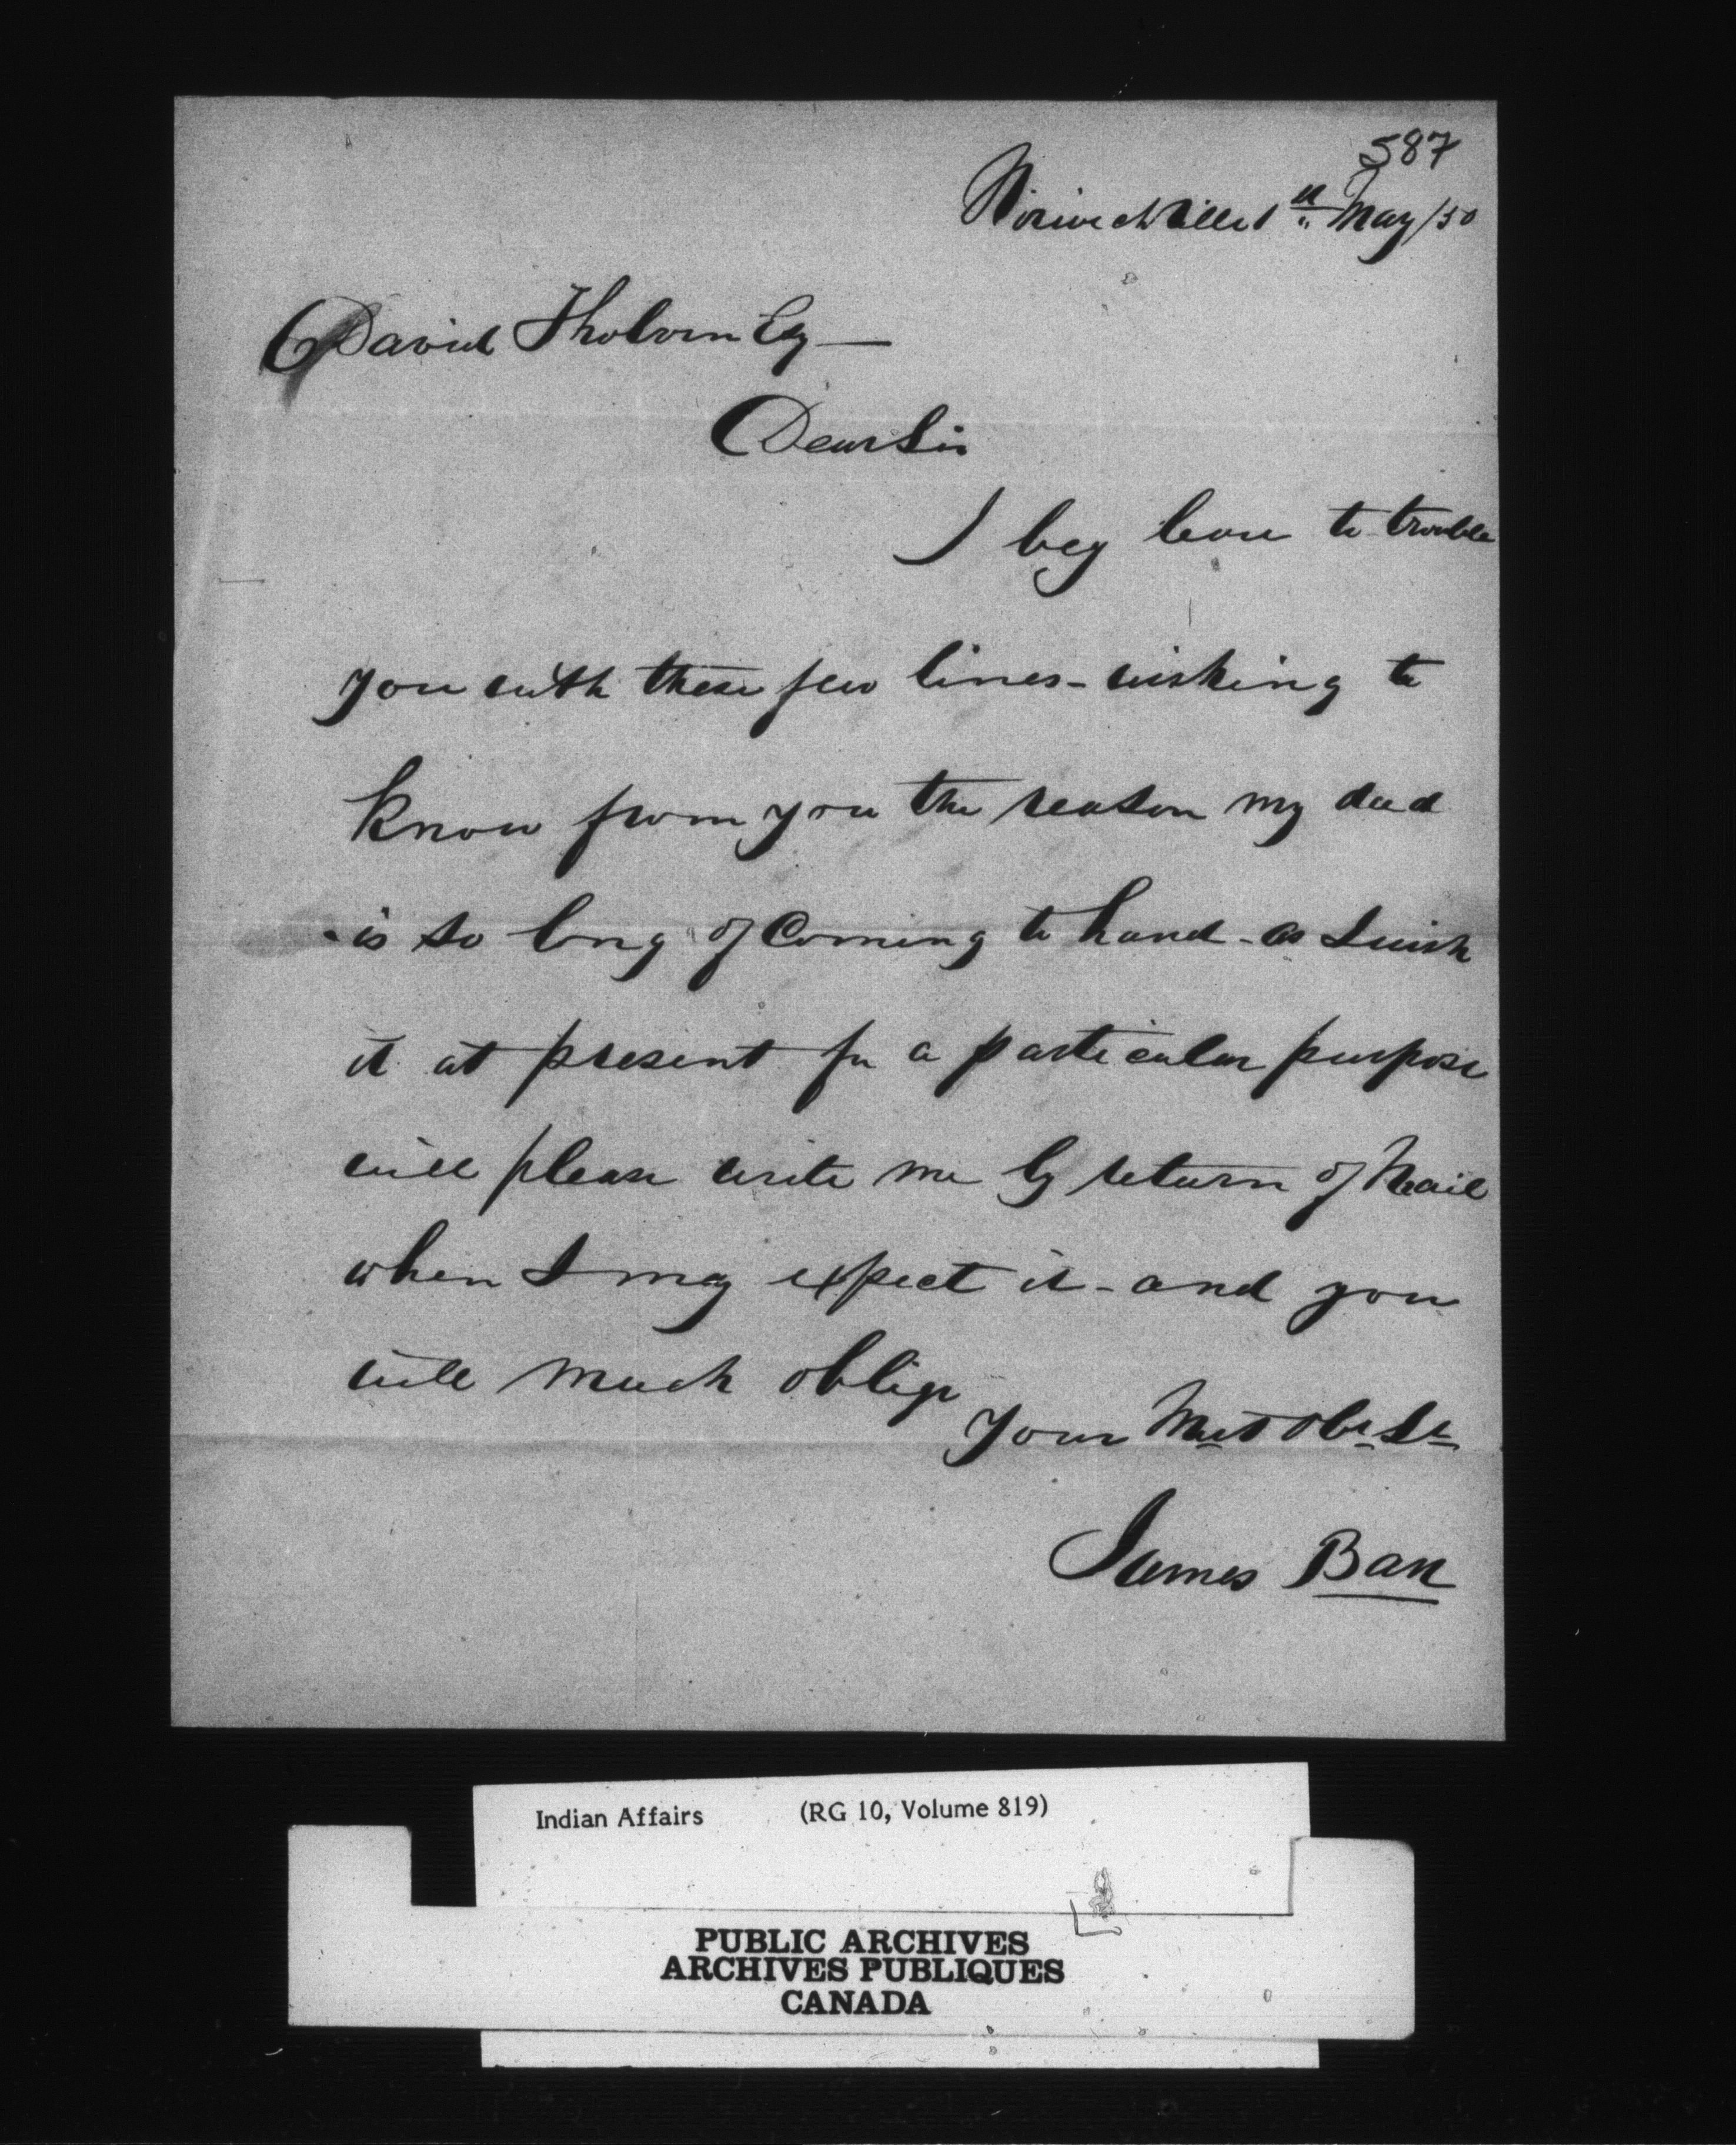 587
Norwichville 1st May /50
David Thorburn Esq —
Dear Sir
I beg leave to trouble
you with these few lines - wishing to
know from you the reason my deed
is so long of Coming to hand - as I wish
it at present for a particular purpose
will please write me by return of Mail
when I may expect it - and you
will much oblige
Your Mst Obt St
James Barr
Indian Affairs (RG 10, Volume 819)
PUBLIC ARCHIVES
ARCHIVES PUBLIQUES
CANADA